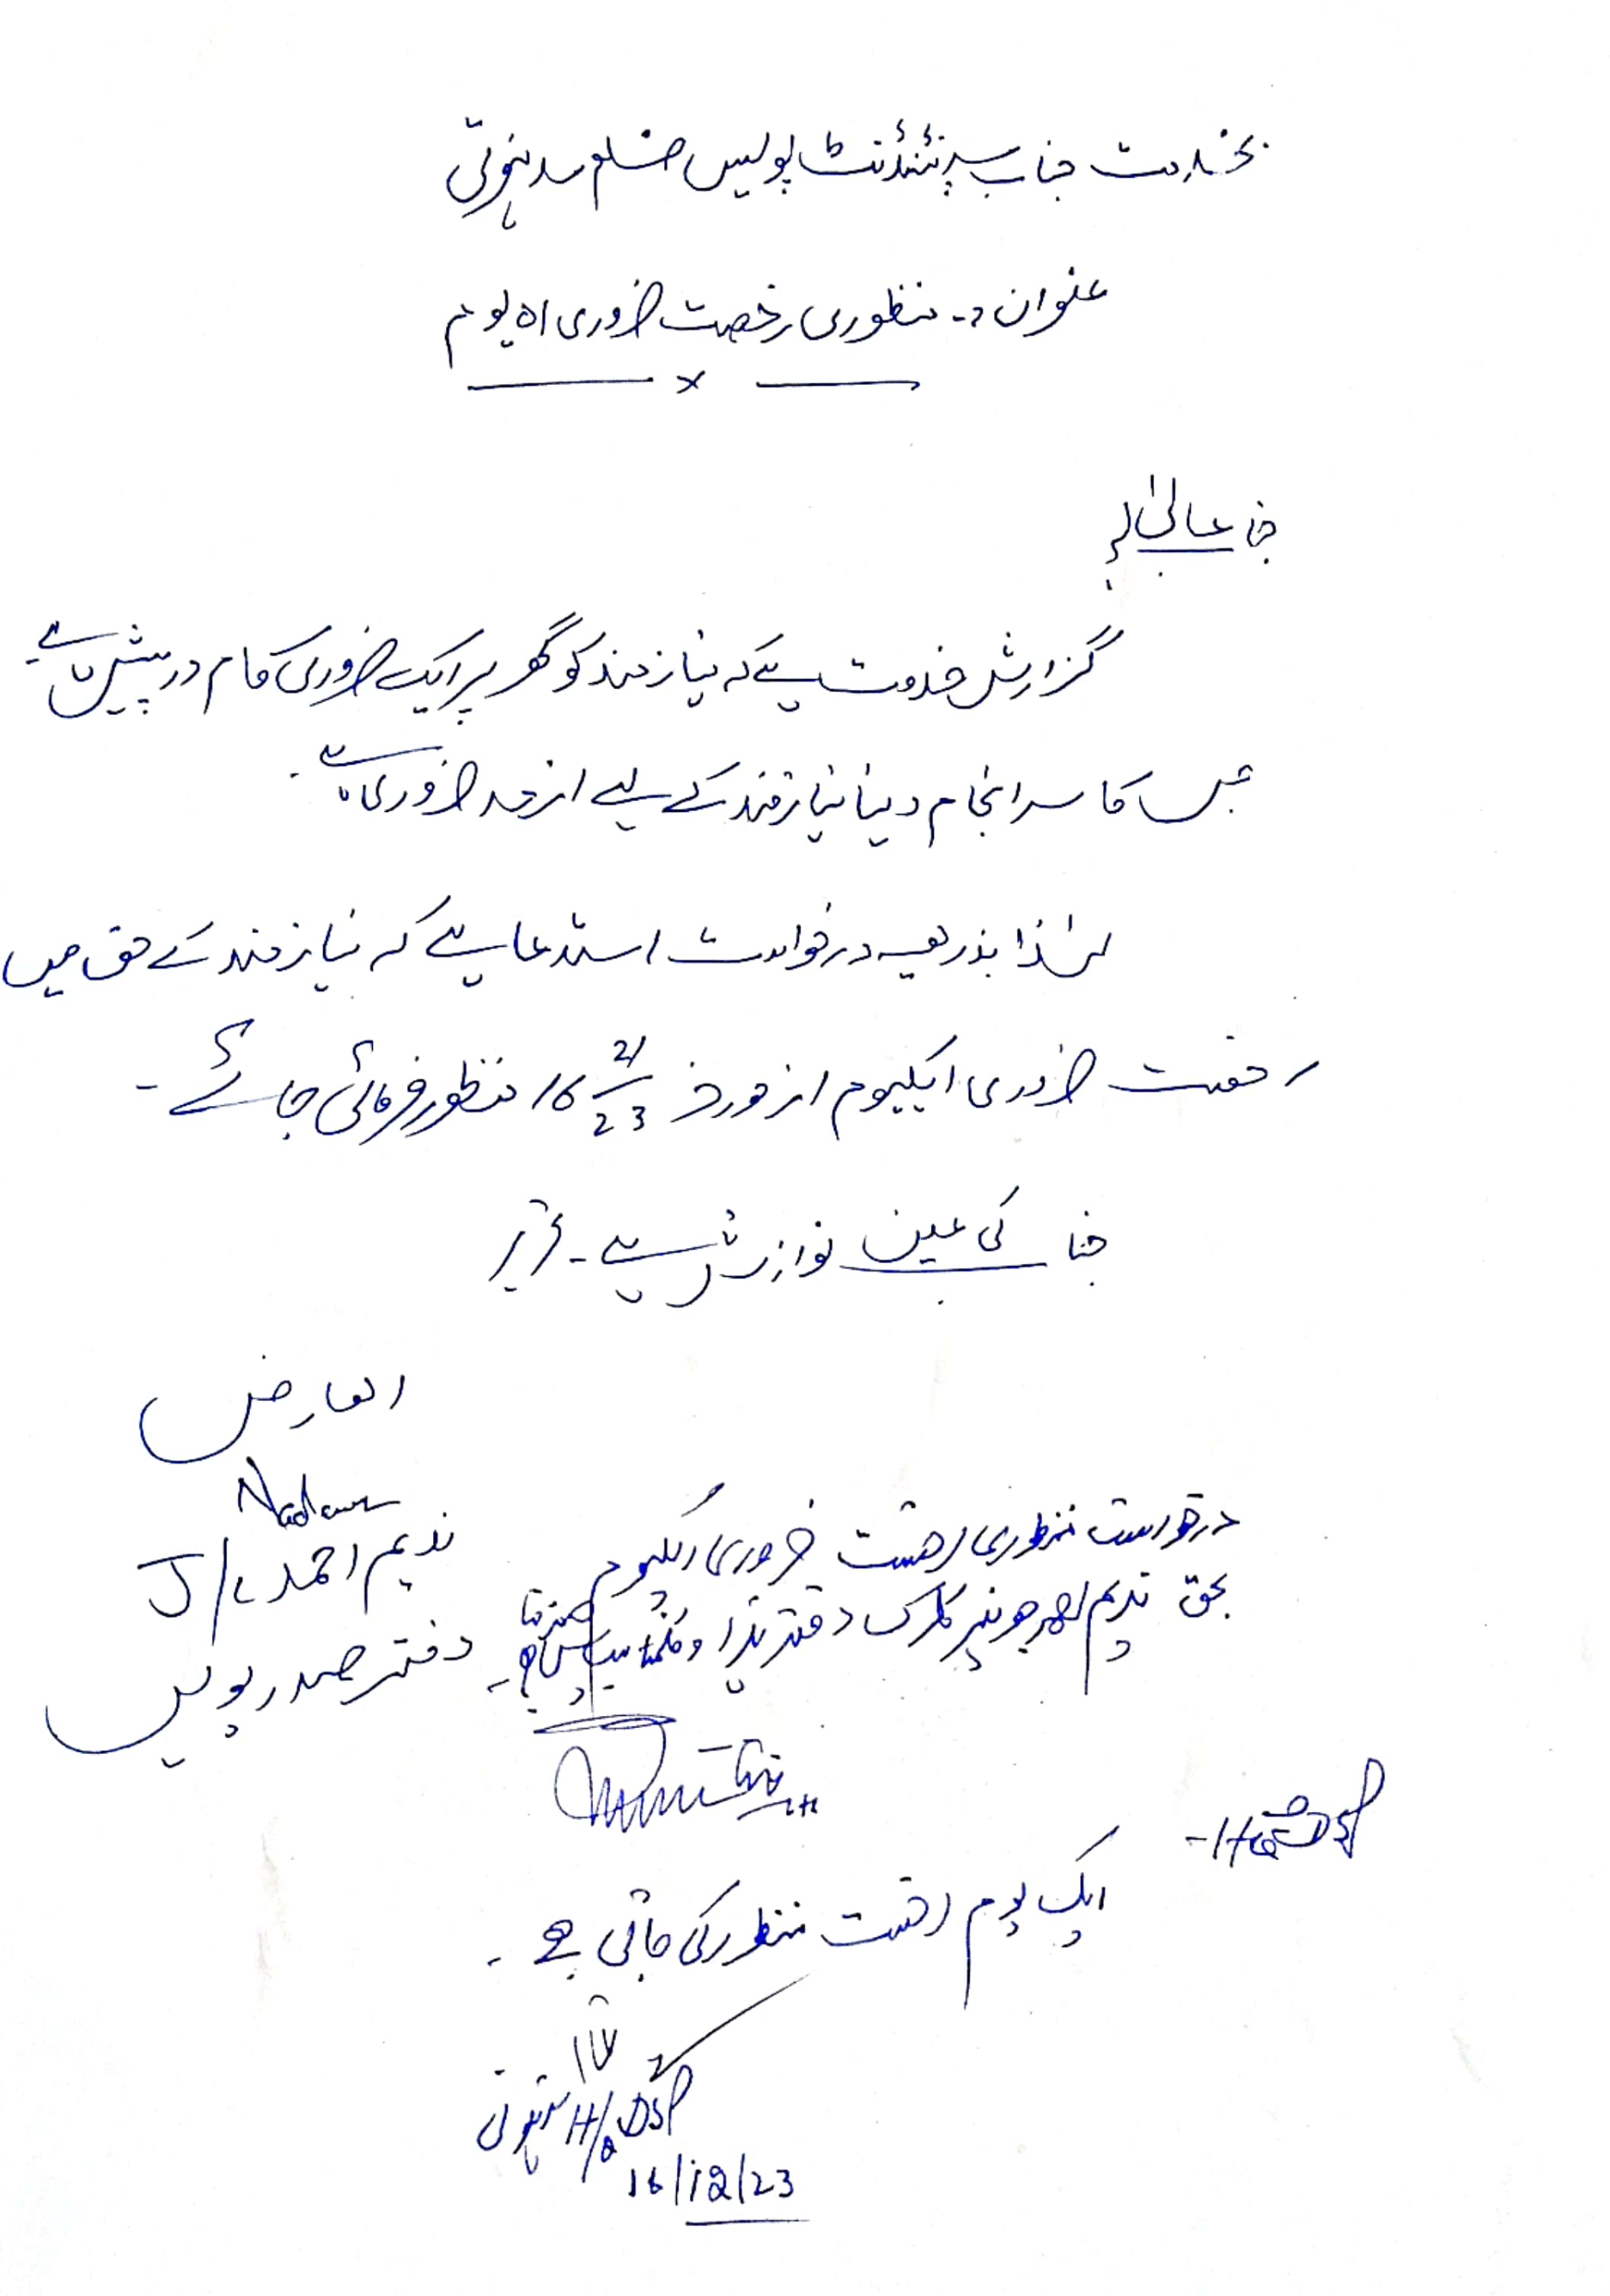 بخدمت جناب سپرنٹنڈنٹ پولیس ضلع سدہنوتی
عنوان :۔ منظوری رخصت ضروری 01 یوم
جناب عالیٰ!
گزارش خدمت ہے کہ نیازمند کو گھر پر ایک ضروری کام درپیش ہے۔
جس کا سرانجام دینا نیازمند کے لیے ازحد ضروری ہے۔
لہٰذا بذریعہ درخواست استدعا ہے کہ نیازمند کے حق میں
رخصت ضروری ایکیوم از مورخہ 16 12/23 منظور فرمائی جائے۔
جناب کی عین نوازش ہے۔ تحریر
العارض
Nadeem
ندیم احمد J/C
دفتر صدر پولیس
درخواست منظوری رخصت ضروری ایکیوم
بحق ندیم احمد جونیئر کلرک دفتر ہذا
DSP H/Q
ایک یوم رخصت منظور کی جاتی ہے۔
DSP H/Q سدہنوتی
16/12/23